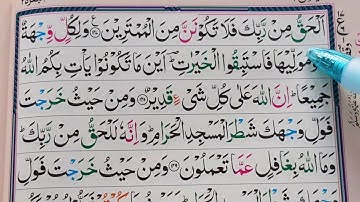 اَلْحَقُّ مِنْ رَّبِّكَ فَلَا تَكُوْنَنَّ مِنَ الْمُمْتَرِيْنَ وَلِكُلٍّ وِّجْهَةٌ
مُوَلِّيْهَا فَاسْتَبِقُوا الْخَيْرٰتِ اَيْنَ مَا تَكُوْنُوْا يَاْتِ بِكُمُ اللّٰهُ
جَمِيْعًا اِنَّ اللّٰهَ عَلٰى كُلِّ شَيْءٍ قَدِيْرٌ وَمِنْ حَيْثُ خَرَجْتَ
فَوَلِّ وَجْهَكَ شَطْرَ الْمَسْجِدِ الْحَرَامِ وَاِنَّهٗ لَلْحَقُّ مِنْ رَّبِّكَ
وَمَا اللّٰهُ بِغَافِلٍ عَمَّا تَعْمَلُوْنَ وَمِنْ حَيْثُ خَرَجْتَ فَوَلِّ